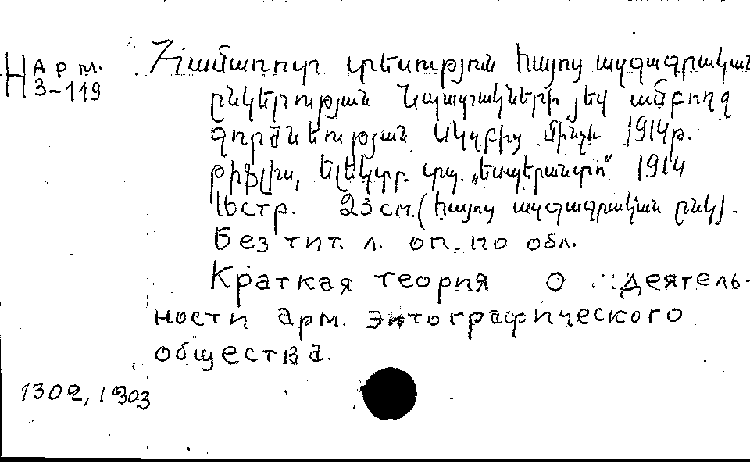 Н Арм.
3-119
Համառոտ տեսություն հայոց ազգագրական
ընկերության նպատակների յեվ ամբողջ
գործունեության սկզբից մինչև 1914թ.
թիֆլիս, ելեկտր. տպ. „Էսպերանտո" 1914
16стр. 23см. (հայոց ազգագրական ընկ).
Без тит. л. оп. по обл.
Краткая теория о деятель-
ности арм. энтографического
общества.
1302, 1303